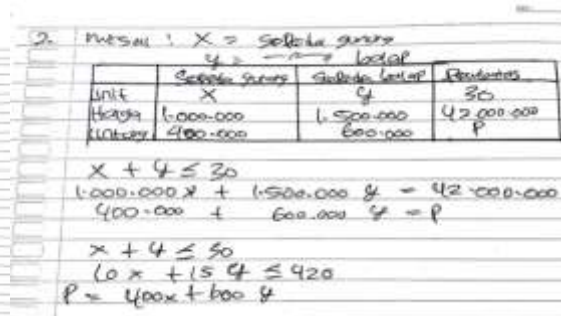 2. misal : X = sepeda gunung
y = —"— balap
Sepeda gunung Sepeda balap Pembatas
Unit X y 30
Harga 1.000.000 1.500.000 42.000.000
Untung 400.000 600.000 P
x + y ≤ 30
1.000.000 x + 1.500.000 y = 42.000.000
400.000 + 600.000 y = P
x + y ≤ 30
10 x + 15 y ≤ 420
P = 400x + 600 y